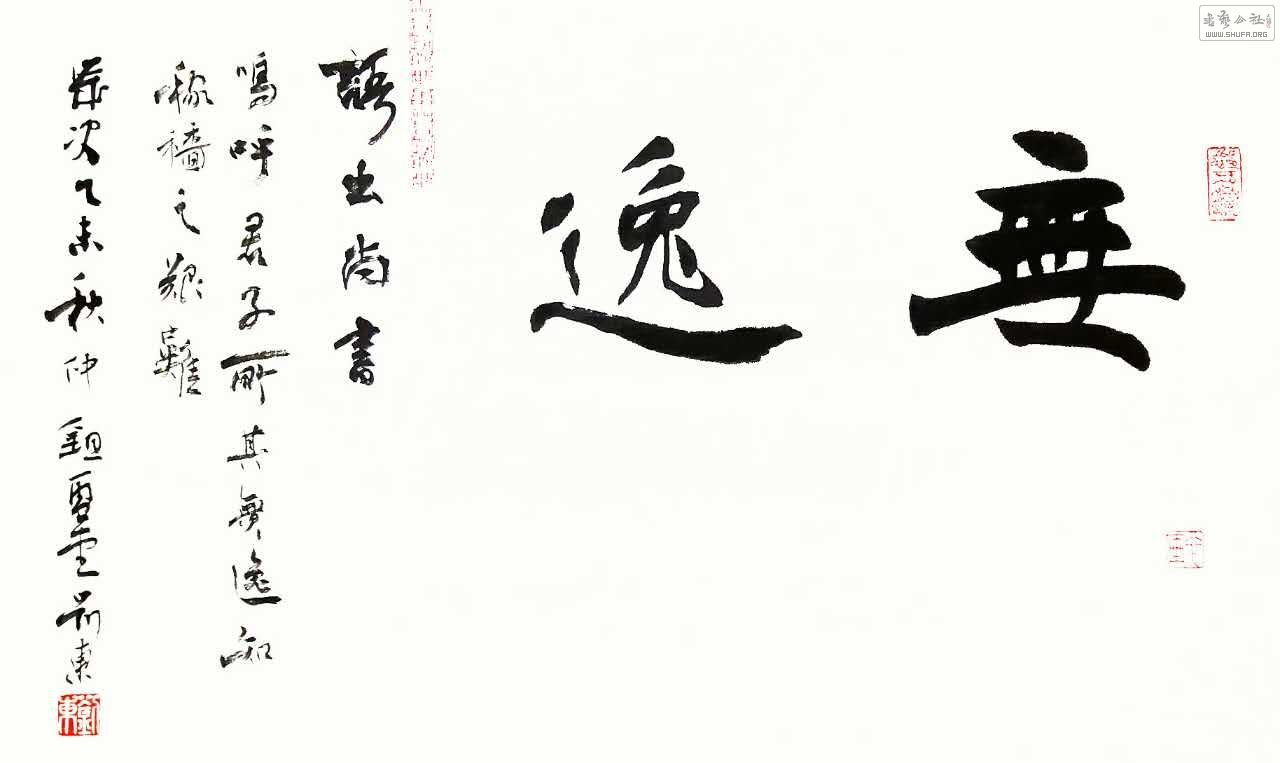 無逸
語出尚書
嗚呼君子所其無逸知
稼穡之艱難
歲次乙未秋仲鉏東
书藝公社
WWW.SHUFA.ORG